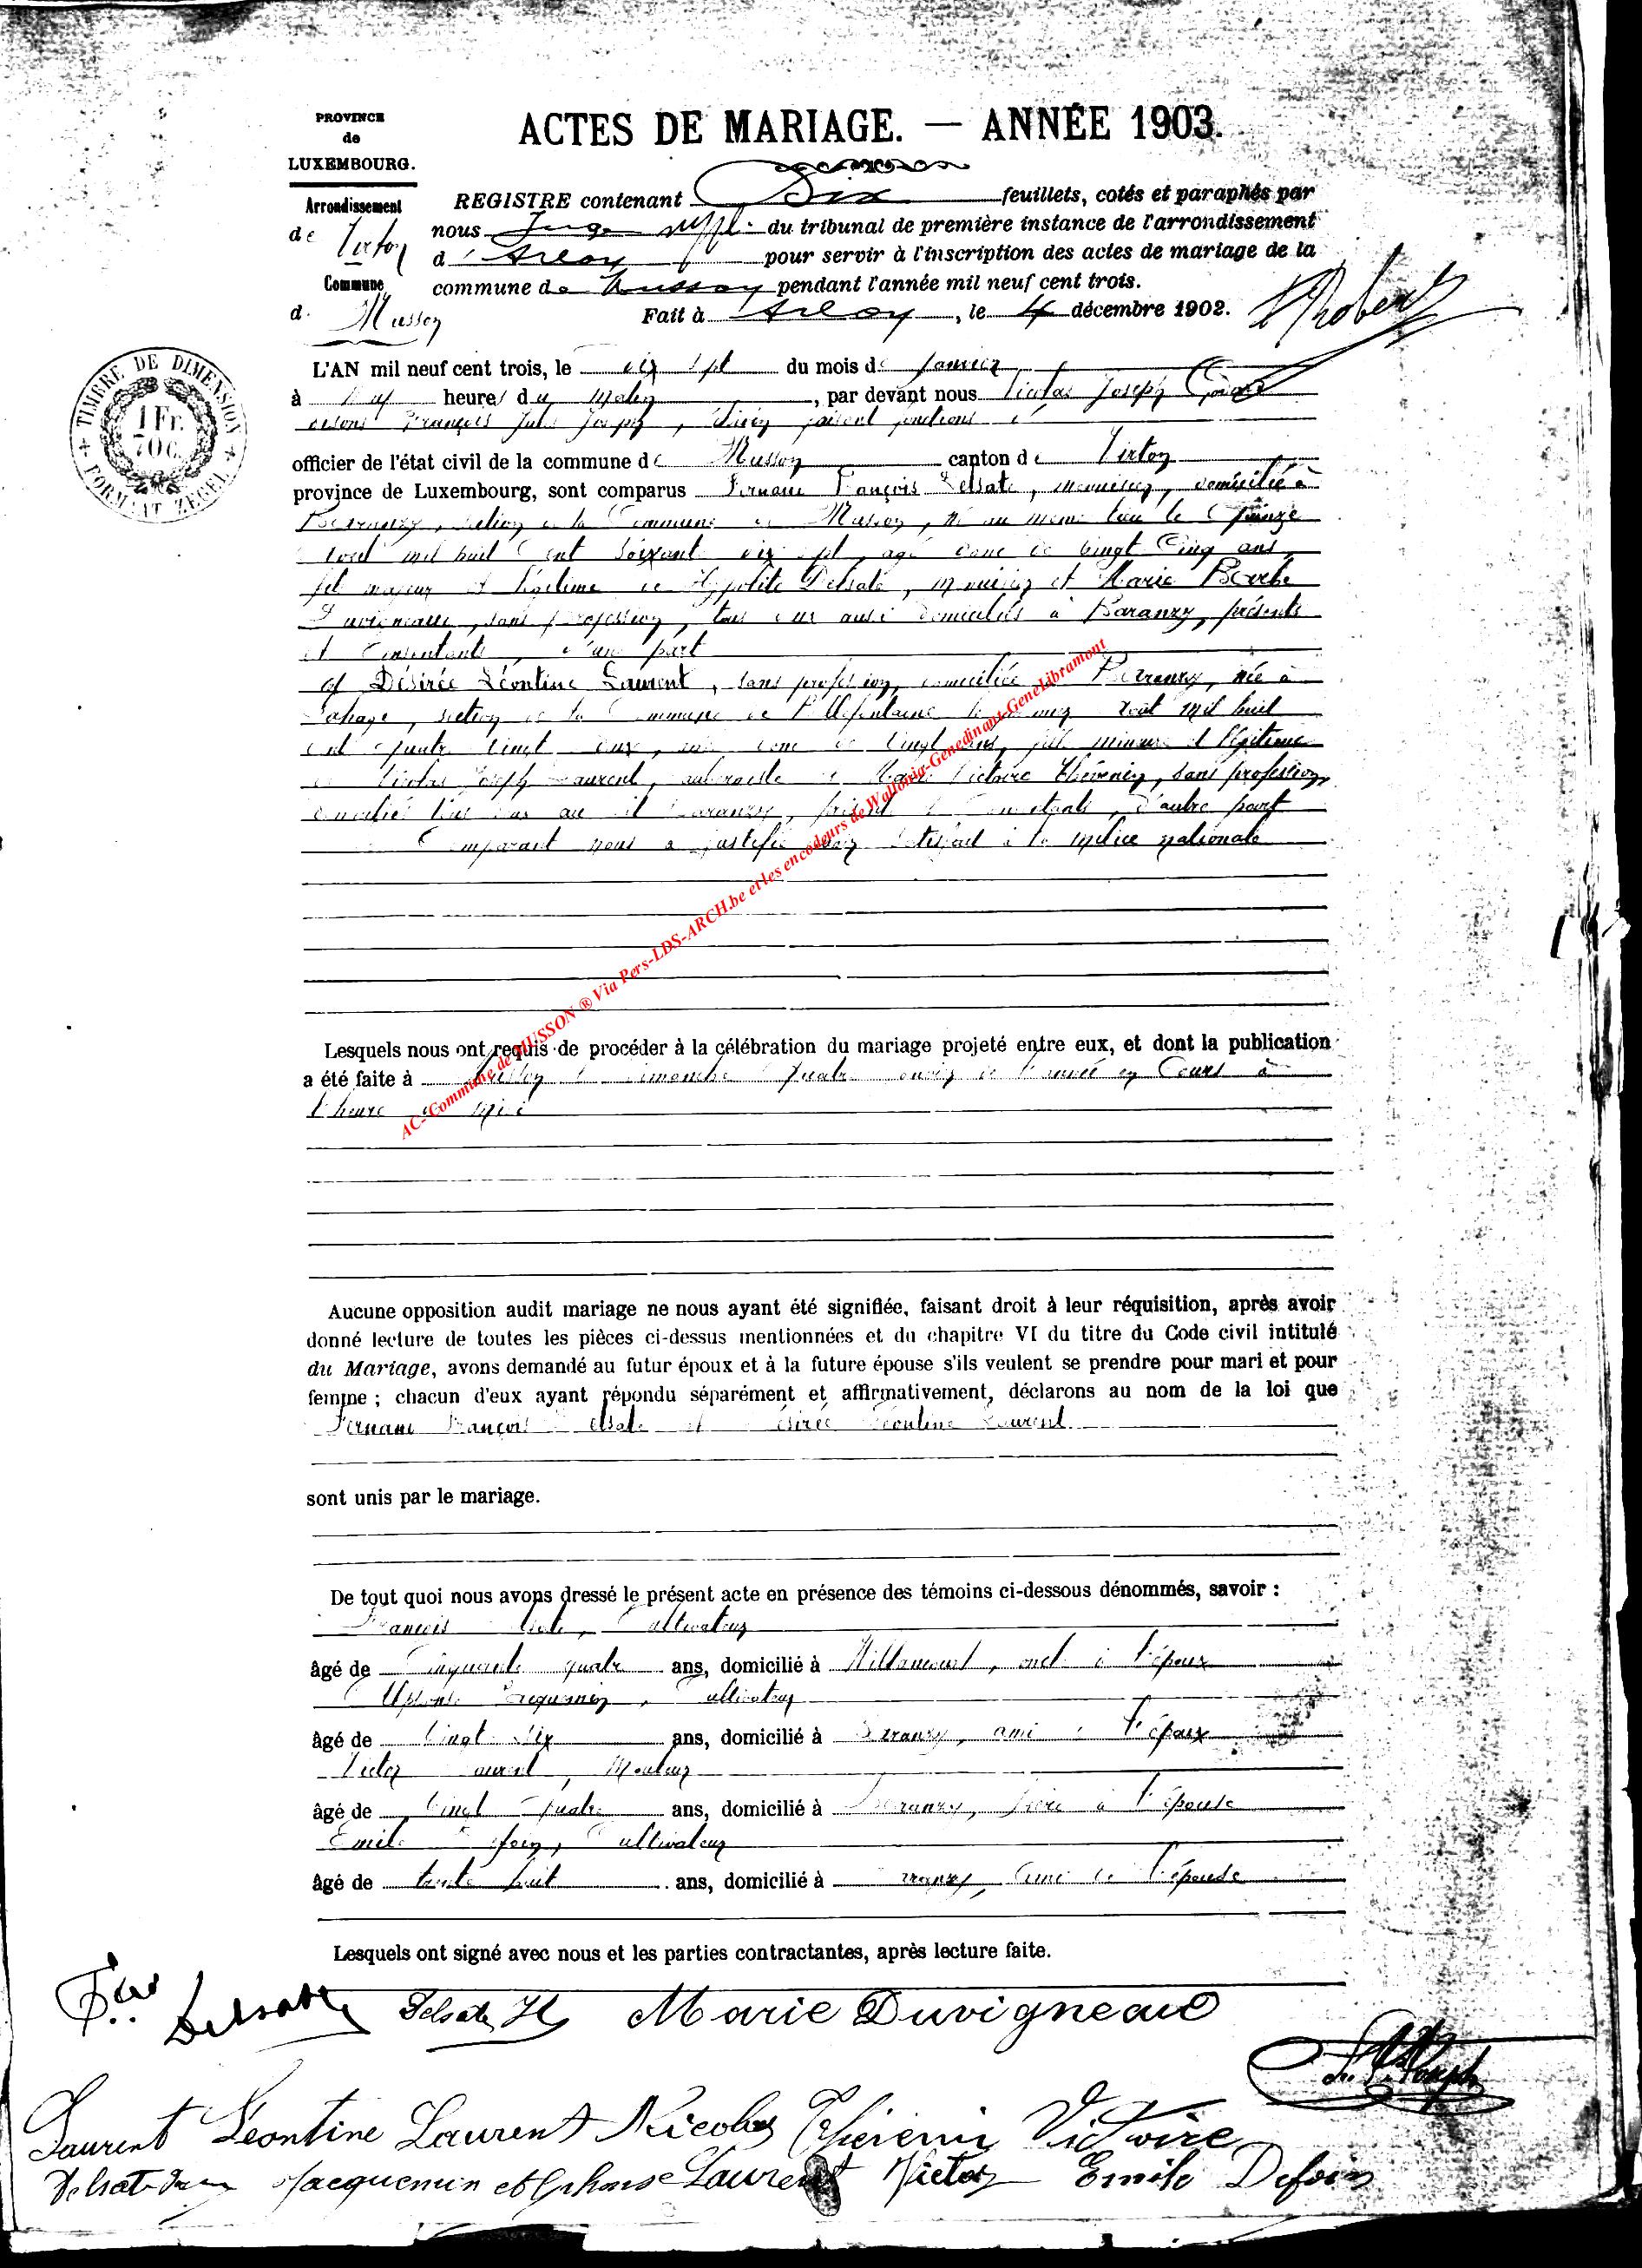 PROVINCE
de
LUXEMBOURG.
Arrondissement
de Virton
Commune
d. Musson
ACTES DE MARIAGE. — ANNÉE 1903.
REGISTRE contenant Dix feuillets, cotés et paraphés par
nous Juge suppl. du tribunal de première instance de l'arrondissement
d'Arlon pour servir à l'inscription des actes de mariage de la
commune de Musson pendant l'année mil neuf cent trois.
Fait à Arlon, le 4 décembre 1902.
TIMBRE DE DIMENSION
1 Fr.
70 C.
FORMAAT ZEGEL
L'AN mil neuf cent trois, le dix sept du mois de Janvier
à heures du matin, par devant nous Nicolas Joseph
François Jules Joseph, faisant fonctions d
officier de l'état civil de la commune de Musson canton de Virton
province de Luxembourg, sont comparus Fernand François Delsate, menuisier, domicilié à
Baranzy, section de la Commune de Musson, né au même lieu le quinze
août mil huit Cent soixante dix sept, âgé donc de vingt Cinq ans,
fils majeur et légitime de Hyppolite Delsate, menuisier et Marie Barbe
Duvigneaud, sans profession, tous deux aussi domiciliés à Baranzy, présents
et Consentants, d'une part
et Désirée Léontine Laurent, sans profession, domiciliée à Baranzy, née à
Lahage, section de la Commune de Bellefontaine le août mil huit
cent quatre vingt deux, donc de vingt ans, fille mineure et légitime
de Nicolas Joseph Laurent, et Marie Victoire Thévenin, sans profession,
domiciliés tous deux au dit Baranzy, présents et Consentants, d'autre part
Comparant nous a justifié avoir satisfait à la milice nationale
Lesquels nous ont requis de procéder à la célébration du mariage projeté entre eux, et dont la publication
a été faite à Musson le dimanche quatre Janvier de l'année en Cours à
l'heure de midi
Aucune opposition audit mariage ne nous ayant été signifiée, faisant droit à leur réquisition, après avoir
donné lecture de toutes les pièces ci-dessus mentionnées et du chapitre VI du titre du Code civil intitulé
du Mariage, avons demandé au futur époux et à la future épouse s'ils veulent se prendre pour mari et pour
femme ; chacun d'eux ayant répondu séparément et affirmativement, déclarons au nom de la loi que
Fernand François Delsate et Désirée Léontine Laurent
sont unis par le mariage.
De tout quoi nous avons dressé le présent acte en présence des témoins ci-dessous dénommés, savoir :
François Delsate, Cultivateur
âgé de Cinquante quatre ans, domicilié à Willancourt, oncle à l'époux
Alphonse Jacquemin, Cultivateur
âgé de Vingt Six ans, domicilié à Baranzy, ami de l'époux
Victor Laurent, Mouleur
âgé de Vingt Quatre ans, domicilié à Baranzy, frère à l'épouse
Emile Defoin, Cultivateur
âgé de trente huit ans, domicilié à Baranzy, ami de l'épouse
Lesquels ont signé avec nous et les parties contractantes, après lecture faite.
Delsate Delsate H Marie Duvigneaud
Laurent Léontine Laurent Nicolas Thévenin Victoire
Jacquemin Alphonse Laurent Victor Emile Defoin
AC-Commune de MUSSON ® Via Pers-LDS-ARCH.be et les encodeurs de Wallonia-Genedinant-GeneLibramont